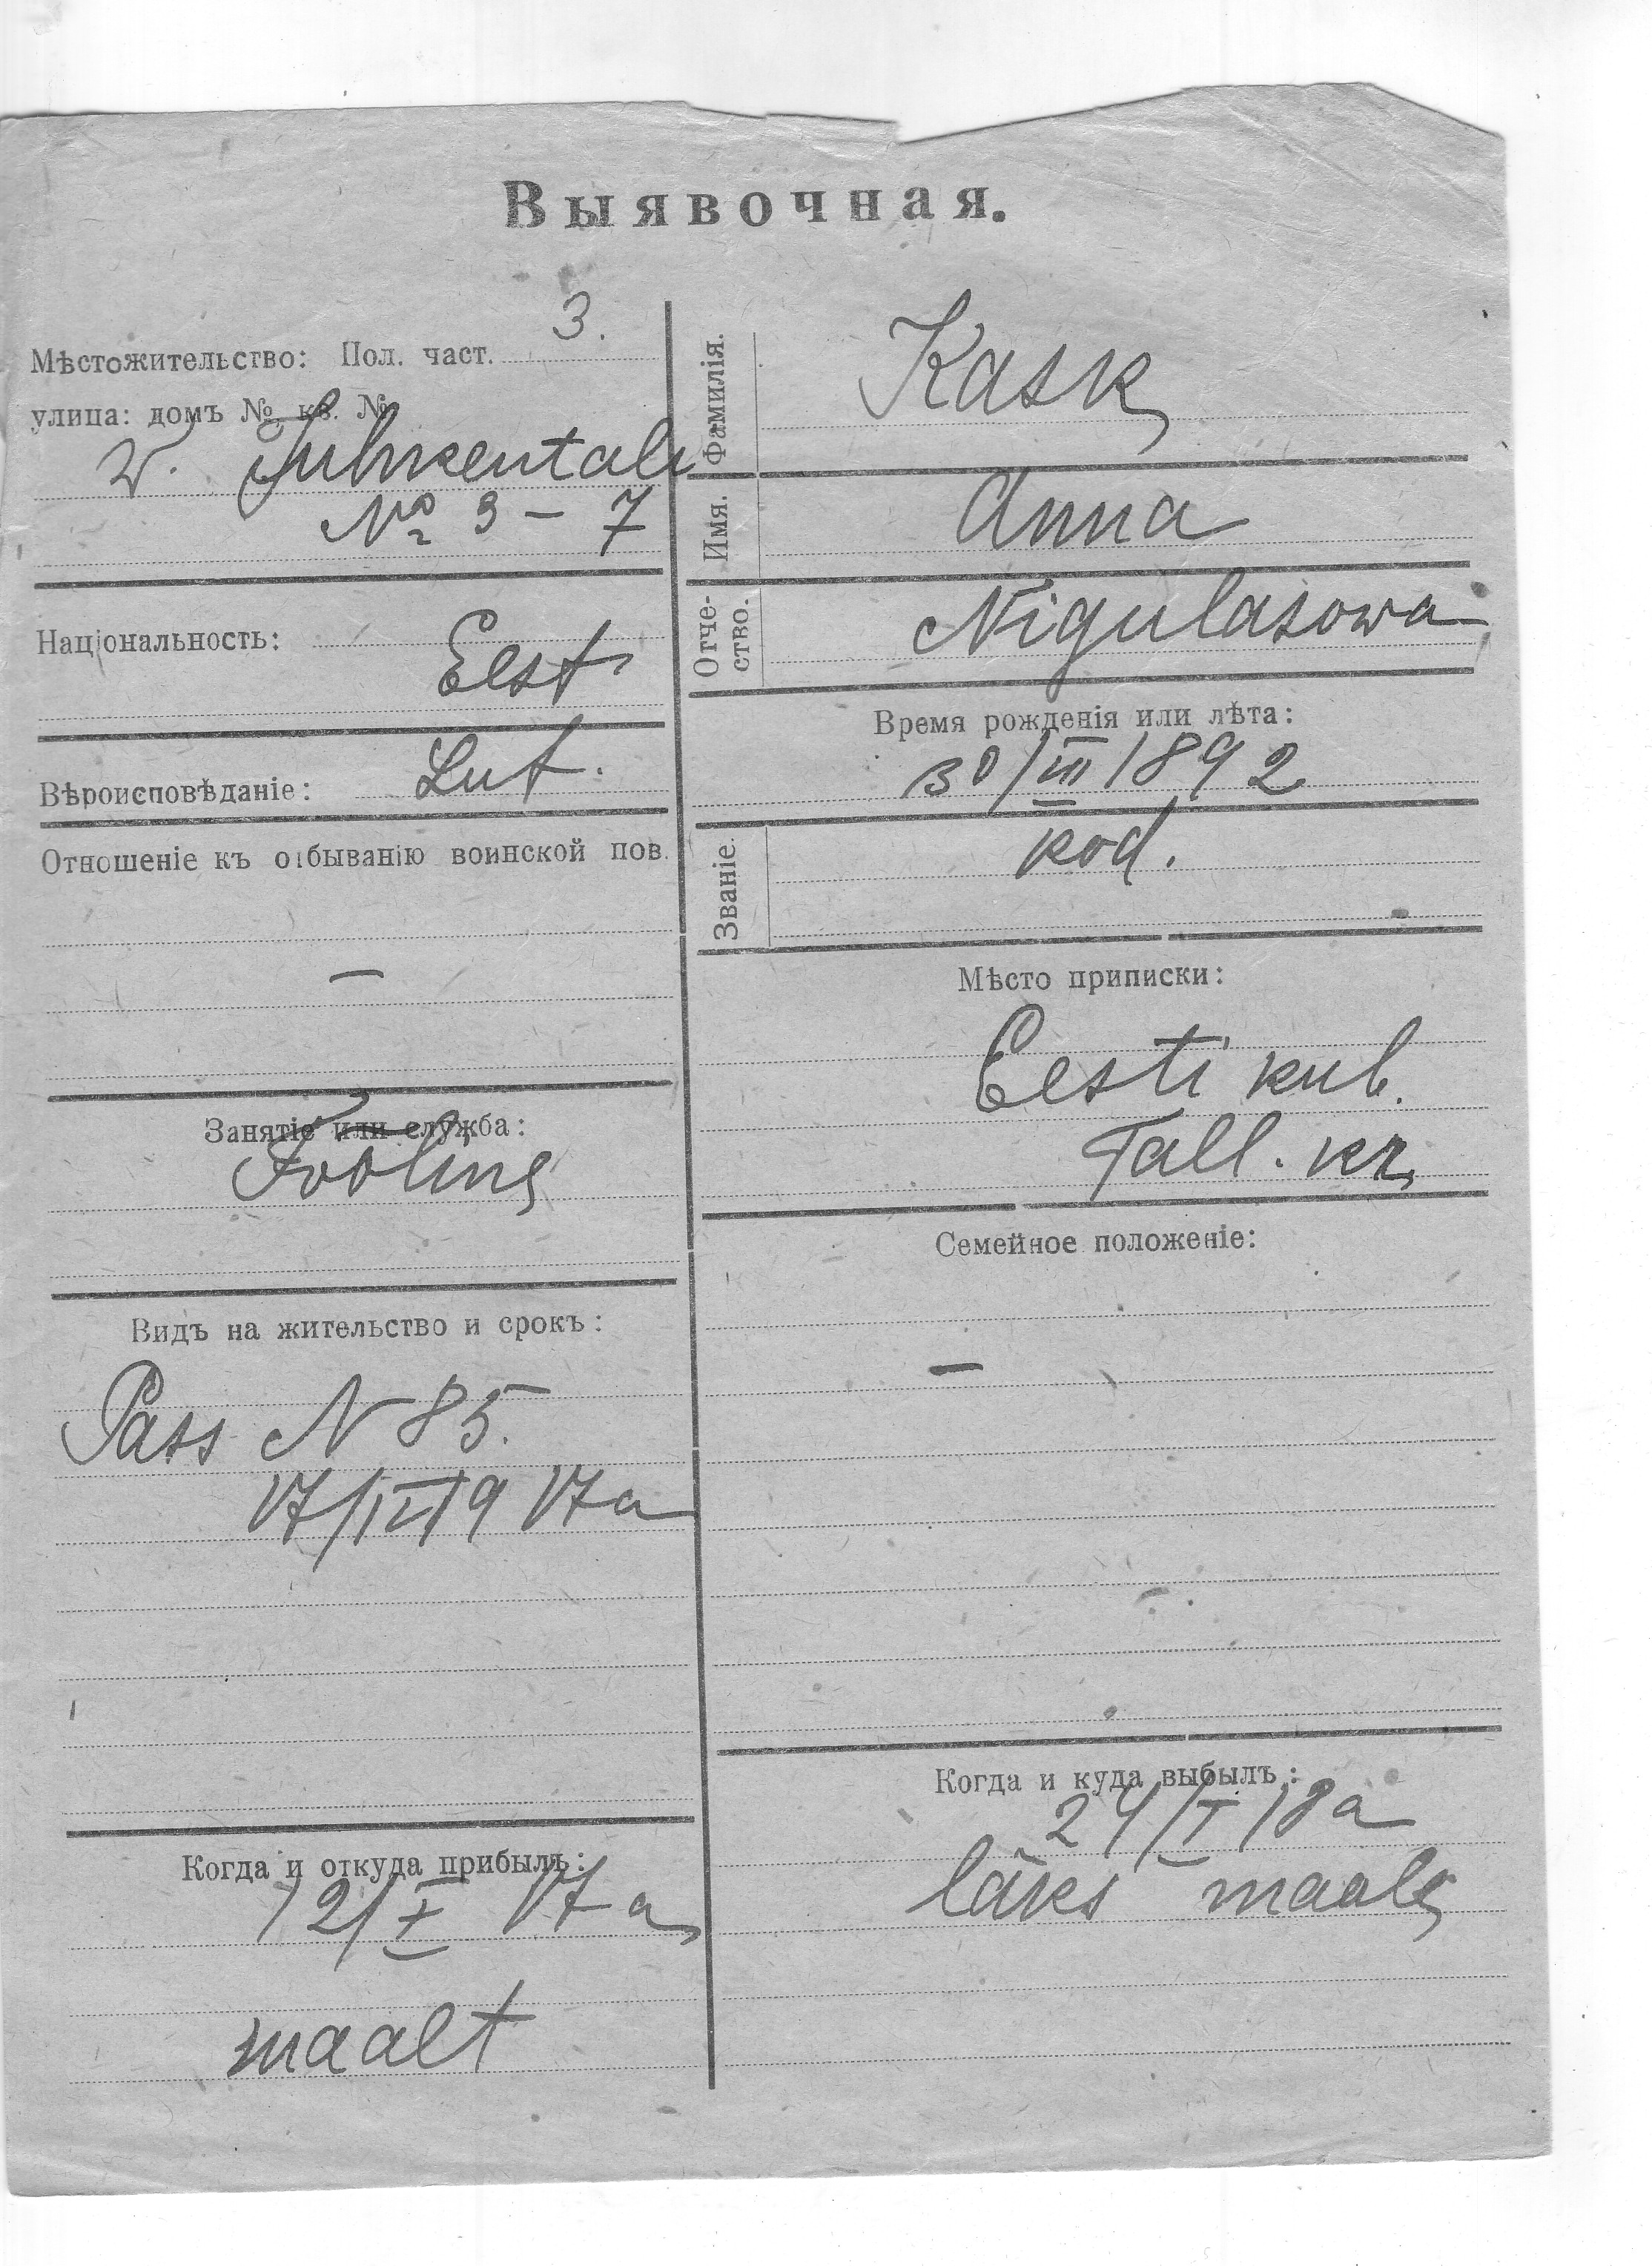 Выявочная.
Мѣстожительство: Пол. част. 3.
улица: домъ № кв. №
W. Juhkentali
№ 3 – 7
Національность:
Eest.
Вѣроисповѣданіе: Lut.
Отношеніе къ отбыванію воинской пов.
—
Занятіе или служба:
Tööline
Видъ на жительство и срокъ:
Pass N 85.
17/IV 1917 a
Когда и откуда прибылъ:
12/X 17 a
maalt
Фамилія. Kask
Имя. Anna
Отчество. Nigulasowa
Время рожденія или лѣта:
30/III 1892
Званіе. kod.
Мѣсто приписки:
Eesti kub.
Tall. kr.
Семейное положеніе:
—
Когда и куда выбылъ:
24/I 18 a
läks maale